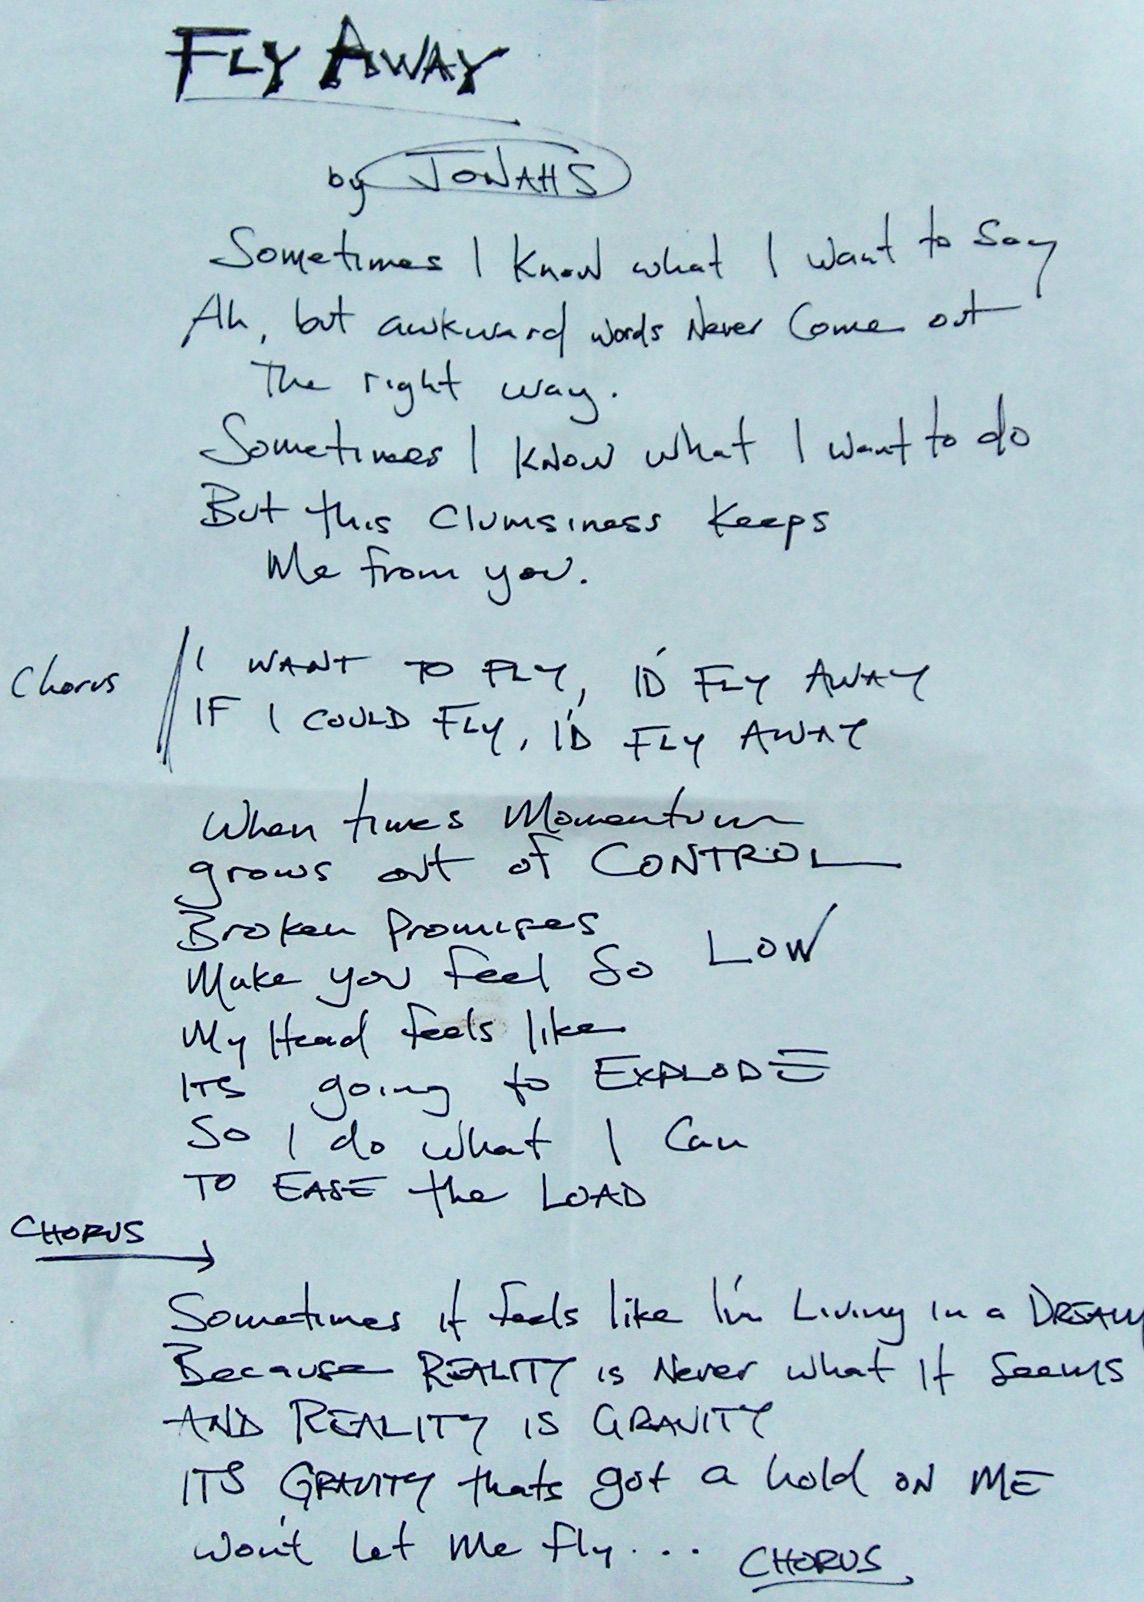 FLY AWAY
by JONAHS
Sometimes I know what I want to say
Ah, but awkward words Never Come out
The right way.
Sometimes I KNOW what I want to do
But this Clumsiness Keeps
Me from you.
Chorus
I WANT TO FLY, I'D FLY AWAY
IF I COULD FLY, I'D FLY AWAY
When times Momentum
grows out of CONTROL
Broken Promises
Make you feel So LOW
My Head feels like
ITS going to EXPLODE
So I do what I Can
TO EASE the LOAD
CHORUS
Sometimes it feels like I'm Living in a DREAM
Because REALITY is Never what it Seems
AND REALITY IS GRAVITY
ITS GRAVITY thats got a hold ON ME
Won't Let Me fly...
CHORUS